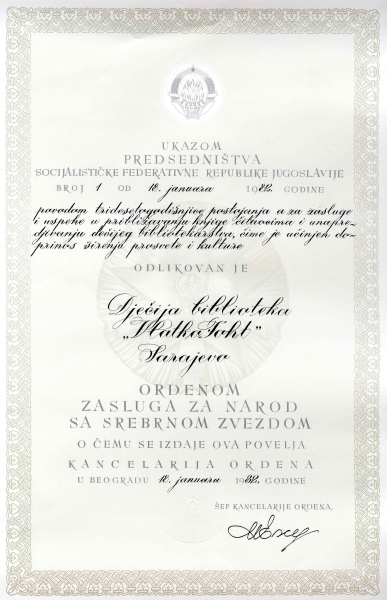 UKAZOM
PREDSEDNIŠTVA
SOCIJALISTIČKE FEDERATIVNE REPUBLIKE JUGOSLAVIJE
BROJ 1 OD 18. januara 1982. GODINE
povodom tridesetogodišnjice postojanja a za zasluge
i uspehe u približavanju knjige čitaocima i unapre-
djivanju dečijeg bibliotekarstva, čime je učinjen do-
prinos širenju prosvete i kulture
ODLIKOVAN JE
Dječija biblioteka
„Vlatko Foht"
Sarajevo
ORDENOM
ZASLUGA ZA NAROD
SA SREBRNOM ZVEZDOM
O ČEMU SE IZDAJE OVA POVELJA
KANCELARIJA ORDENA
U BEOGRADU 18. januara 1982. GODINE
ŠEF KANCELARIJE ORDENA,